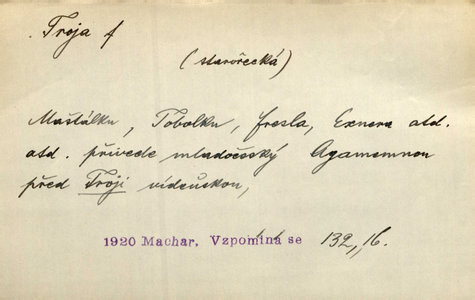 Troja f
(starořecká)
Maštálku, Tobolku, Gresla, Exnera atd.
atd. přivede mladočeský Agamemnon
před Trojí vídeňskou,
1920 Machar, Vzpomíná se 132,16.